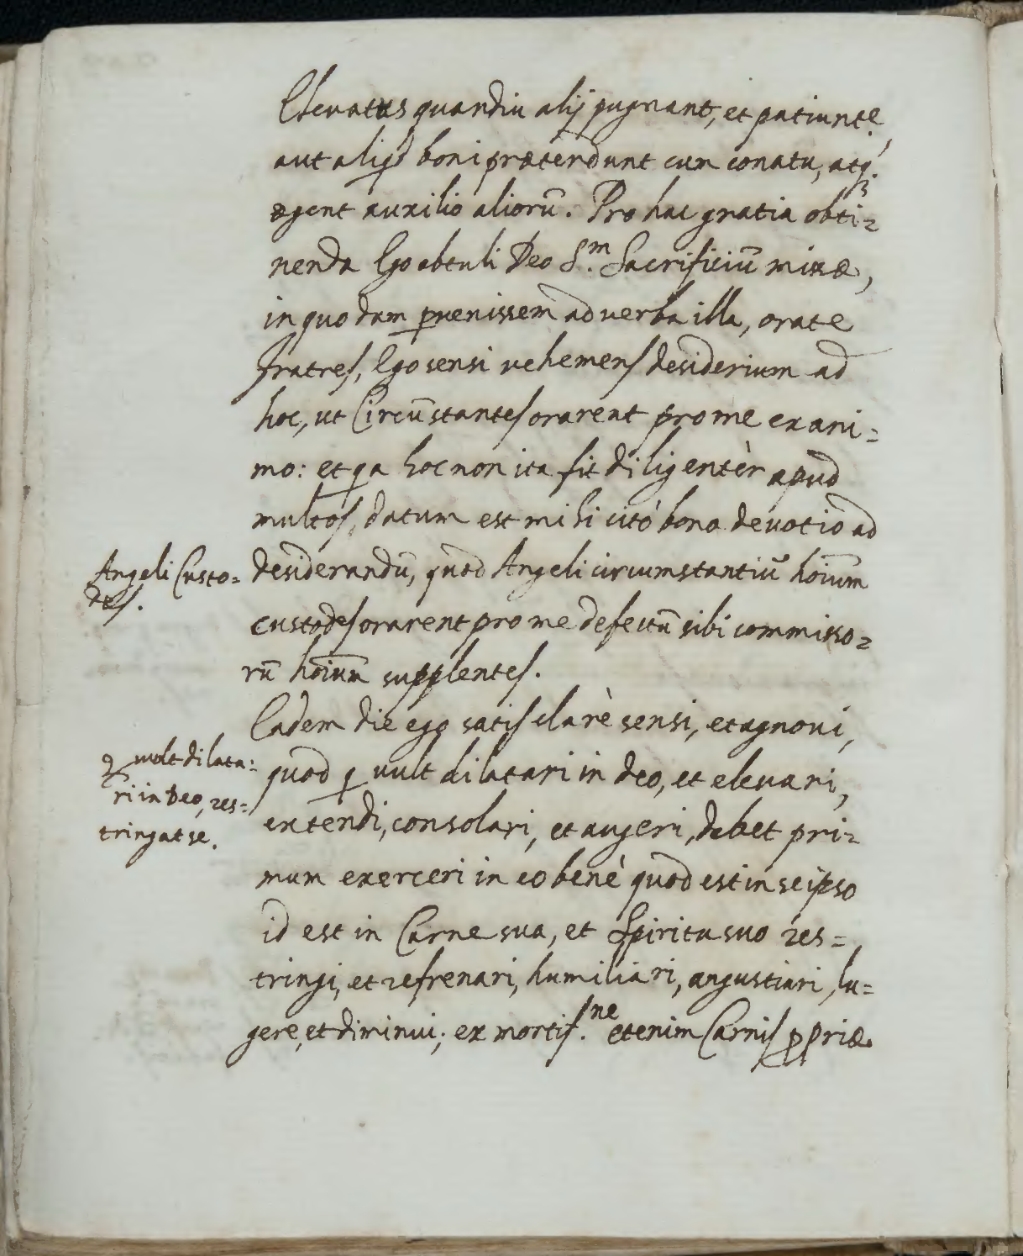 Elevatus quandiu alij pugnant, et patiunt.ͤ,
aut aliqd boni prætendunt cum conatu, atq́.
egent auxilio aliorū. Pro hac gratia obti=
nenda Ego obtuli Deo S.ᵐ Sacrificiū missæ,
in quo dum pvenissem ad verba illa, orate
fratres, Ego sensi vehemens desiderium ad
hoc, ut Circūstantes orarent pro me ex ani=
mo: et qa hoc non ita fit diligentèr apud
multos, datum est mihi citò bona devotio ad
Angeli Custo=
des.
desiderandū, quod Angeli circumstantiū hoīum
custodes orarent pro me defectū sibi commisso=
rū hoīum supplentes.
Eadem die ego satis clarè sensi, et agnovi,
q vult dilata=
ri in Deo, res=
tringat se.
quod q vult dilatari in Deo, et elevari,
extendi, consolari, et augeri, debet pri=
mum exerceri in eo benè quod est in seipso
id est in Carne sua, et Spiritu suo res=
tringi, et refrenari, humiliari, angustiari, lu=
gere, et diminui; ex mortif.ⁿᵉ etenim Carnis ppriæ